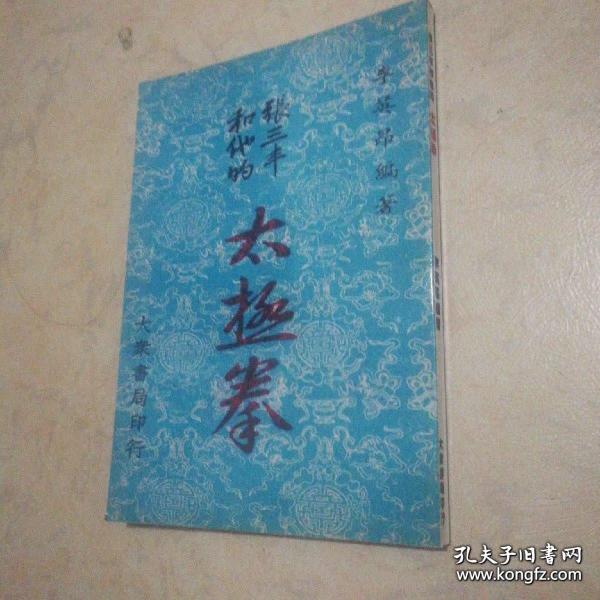 李英昂編著
張三丰
和他的
太極拳
大衆書局印行
孔夫子旧书网
www.kongfz.com